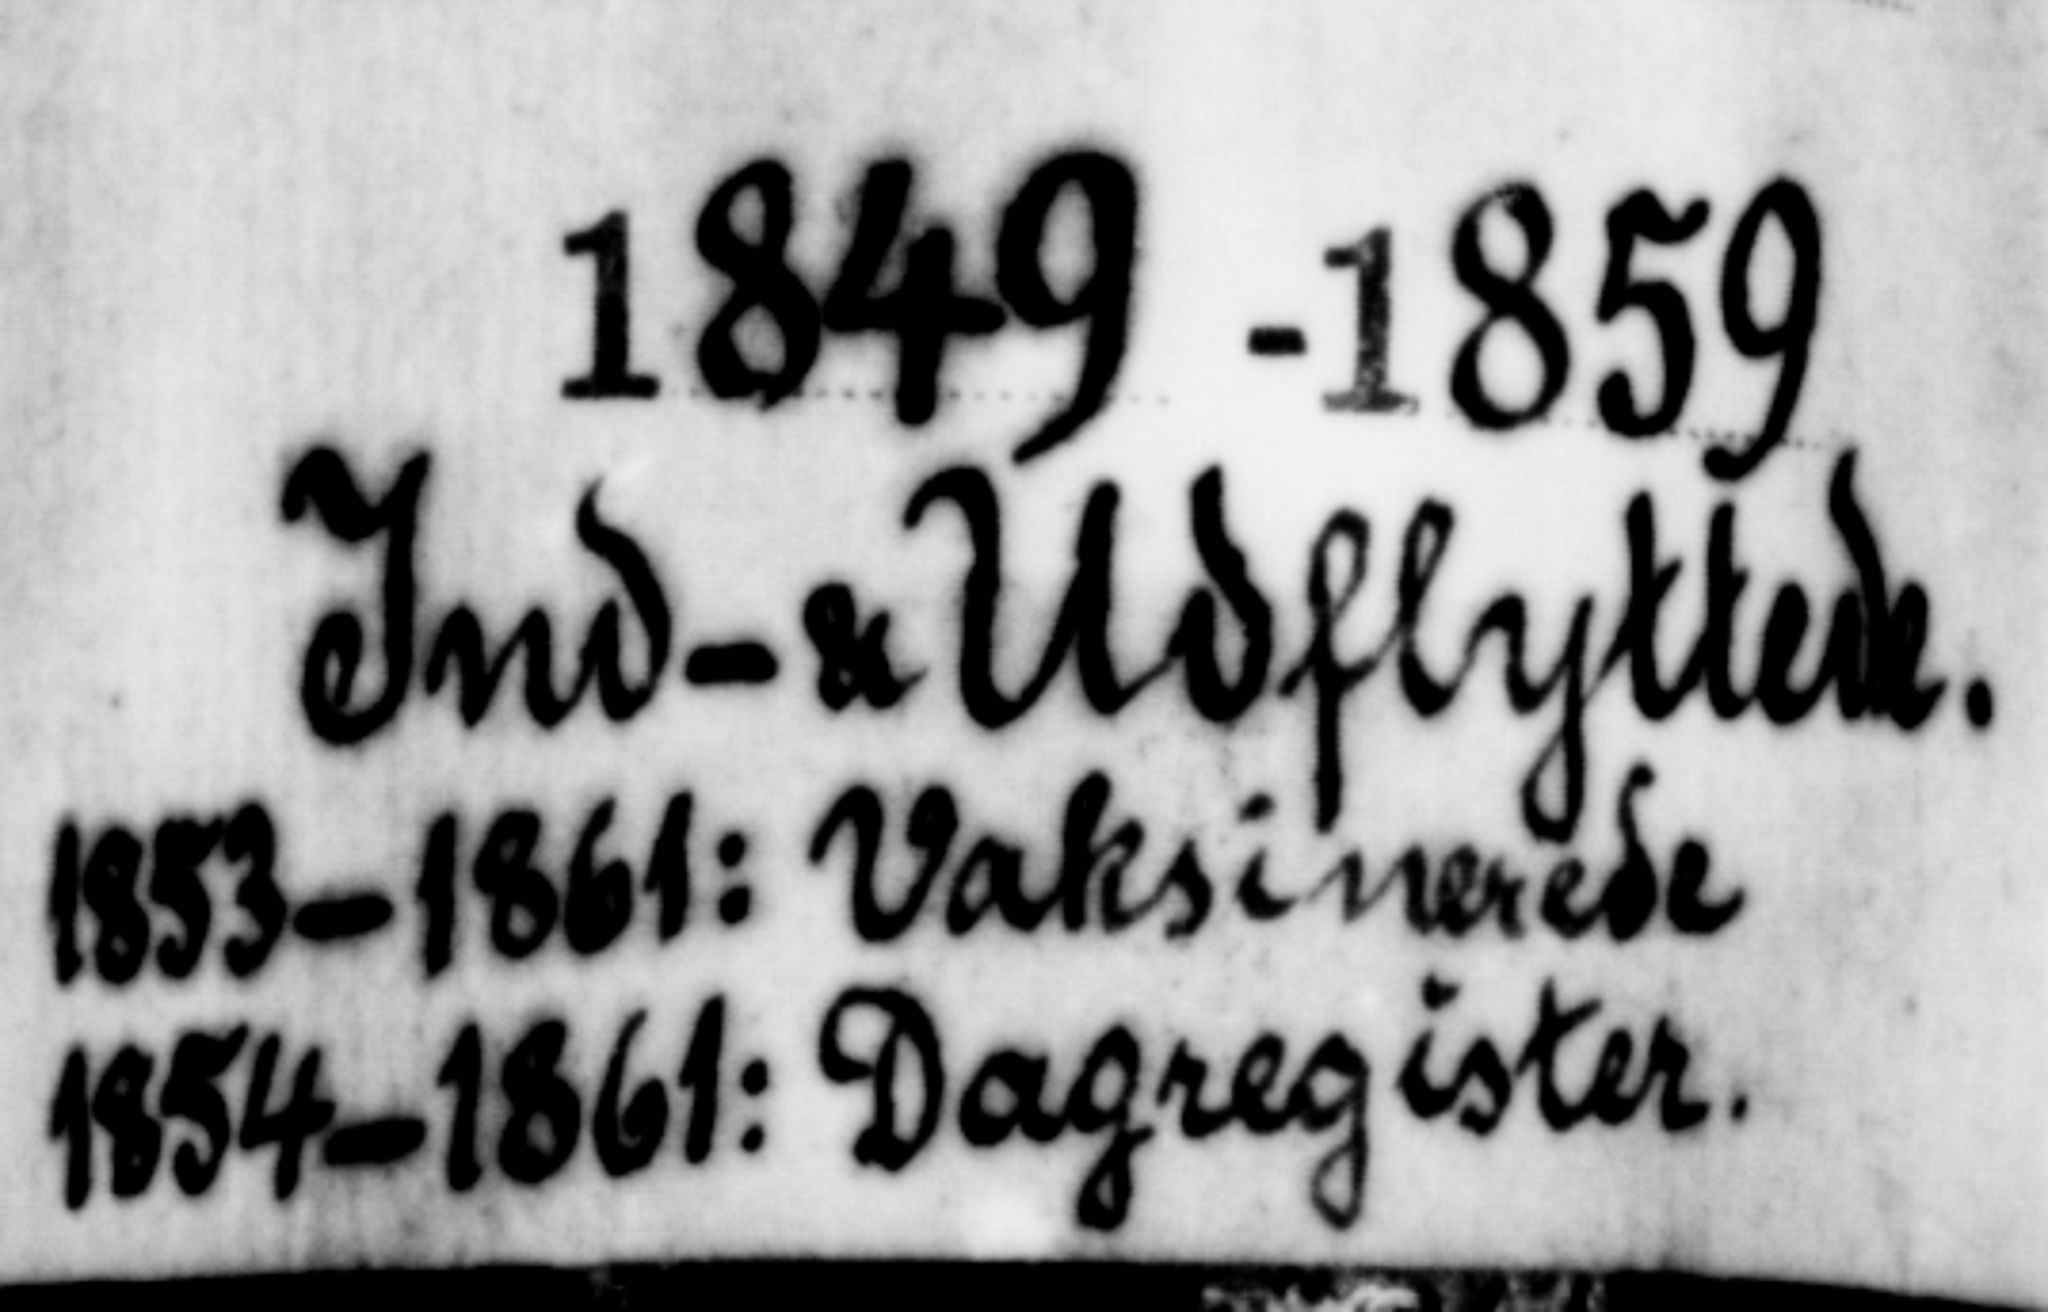 1849 - 1859
Ind- & Udflyttede.
1853-1861: Vaksinerede
1854-1861: Dagregister.